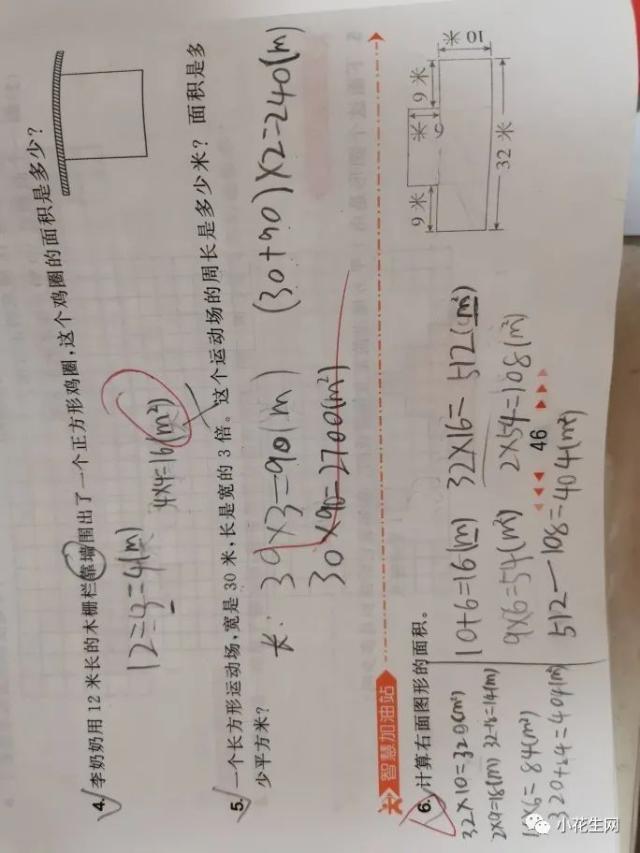 4. 李奶奶用 12 米长的木栅栏靠墙围出了一个正方形鸡圈,这个鸡圈的面积是多少?
4×4=16(m²)
5. 一个长方形运动场,宽是 30 米,长是宽的 3 倍。这个运动场的周长是多少米? 面积是多
少平方米?
长: 30×3=90(m) (30+90)×2=240(m)
30×90=2700(m²)
智慧加油站
6. 计算右面图形的面积。
10+6=16(m) 32×16=512(m²)
9×6=54(m²) 2×54=108(m²)
512-108=404(m²)
32×10=320(m²)
2×9=18(m) 32-18=14(m)
320+84=404(m²)
9 米
米
9 米
10 米
32 米
46
小花生网